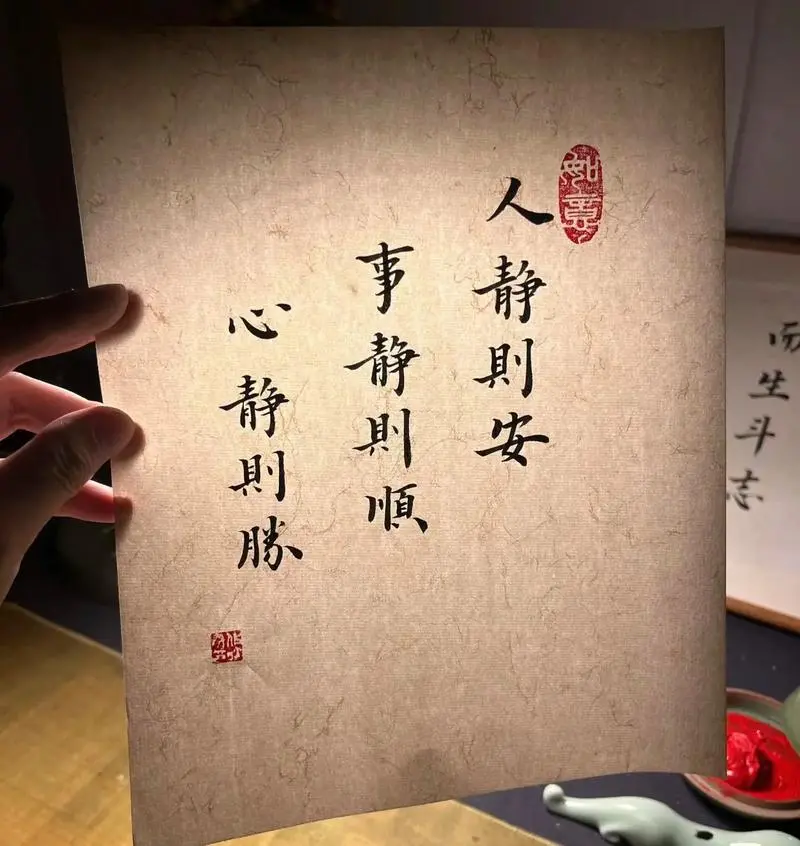 如意
人静則安
事静則順
心静則勝
而生斗志